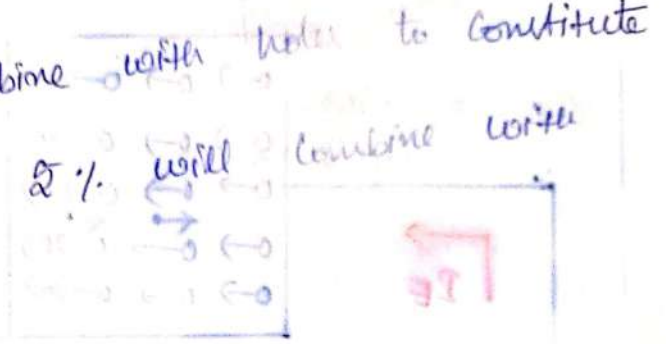 bine with holes to constitute
2 % will combine with